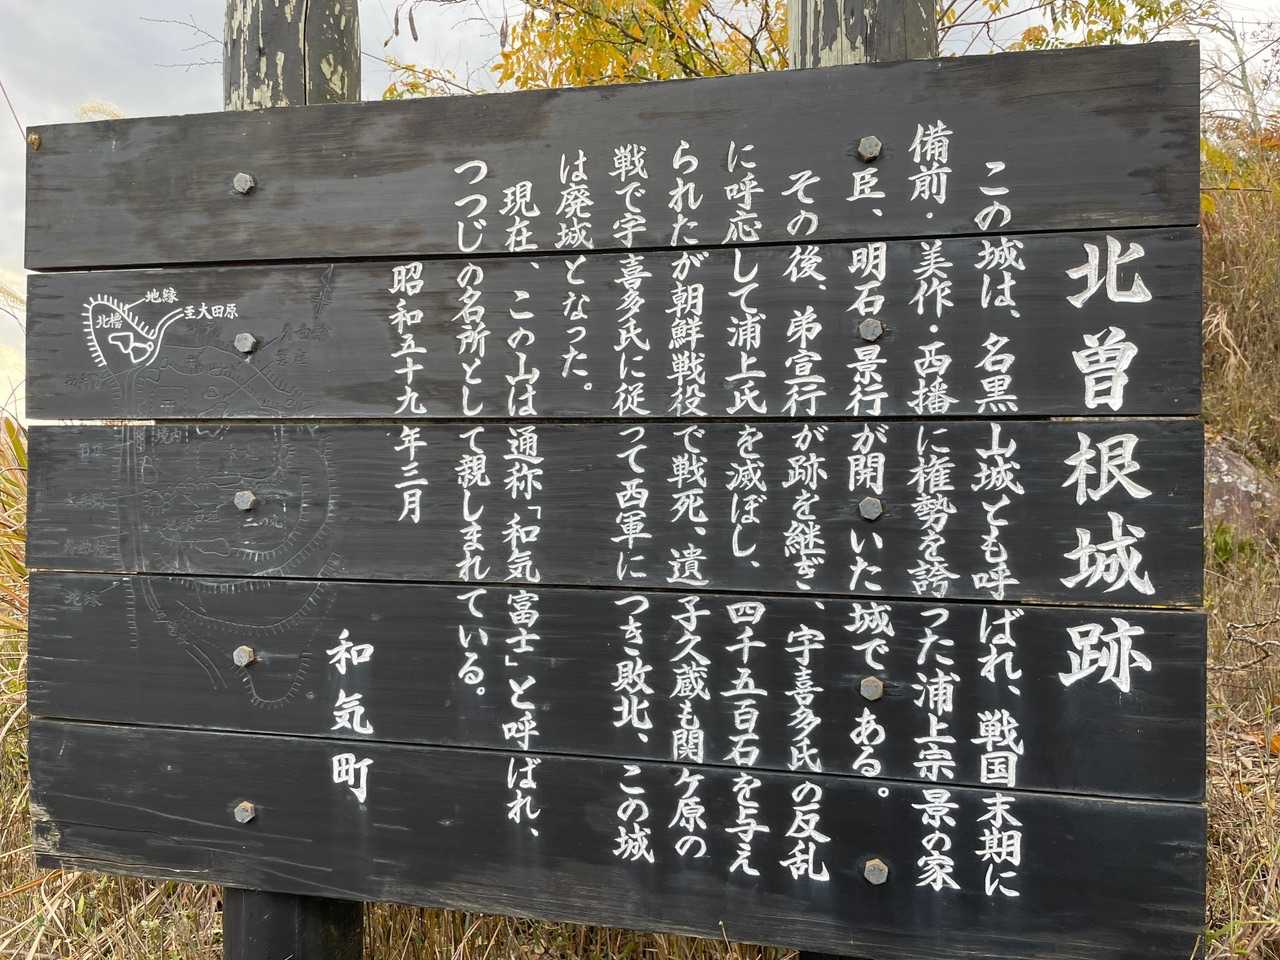 北曽根城跡
この城は、名黒山城とも呼ばれ、戦国末期に
備前・美作・西播に権勢を誇った浦上宗景の家
臣、明石景行が開いた城である。
その後、弟宣行が跡を継ぎ、宇喜多氏の反乱
に呼応して浦上氏を滅ぼし、四千五百石を与え
られたが朝鮮戦役で戦死、遺子久蔵も関ケ原の
戦で宇喜多氏に従って西軍につき敗北、この城
は廃城となった。
現在、この山は通称「和気富士」と呼ばれ、
つつじの名所として親しまれている。
昭和五十九年三月
和気町
地縁
至大田原
北櫓
二の丸